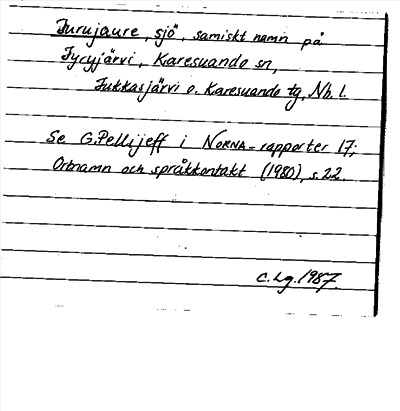 Jurujaure, sjö, samiskt namn på
Jyryjärvi, Karesuando sn,
Jukkasjärvi o. Karesuando tg, Nb. l.
Se G. Pellijeff i NORNA-rapporter 17;
Ortnamn och språkkontakt (1980), s. 22.
C. Lg. 1987.